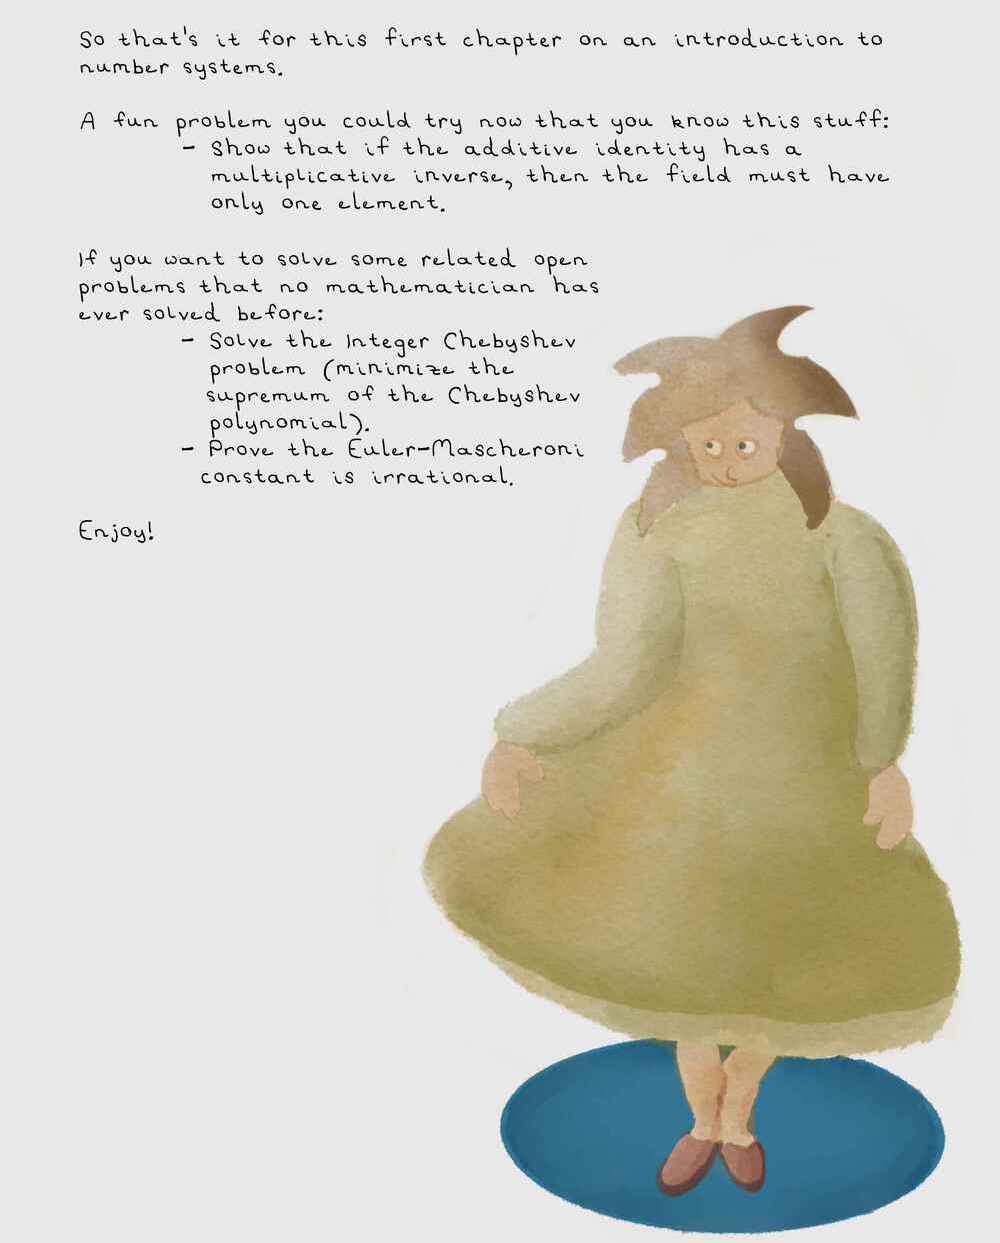 So that's it for this first chapter on an introduction to
number systems.
A fun problem you could try now that you know this stuff:
- Show that if the additive identity has a
multiplicative inverse, then the field must have
only one element.
If you want to solve some related open
problems that no mathematician has
ever solved before:
- Solve the Integer Chebyshev
problem (minimize the
supremum of the Chebyshev
polynomial).
- Prove the Euler-Mascheroni
constant is irrational.
Enjoy!